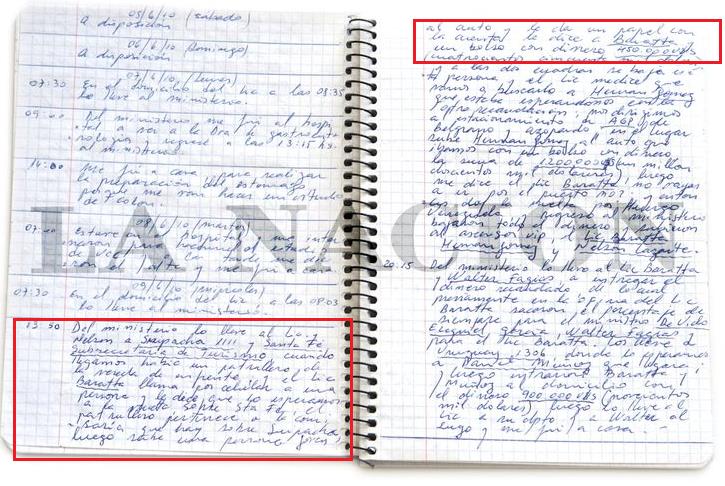 05/6/10 (sabado)
A disposición
06/6/10 (Domingo)
A disposición
07/6/10 (lunes)
07:30 En el domicilio del Lic a las 08:35
lo lleve al ministerio.
09:00 Del ministerio me fui al hospi
tal a ver a la Dra de gastroente
rologia y regrese a las 13:15 hs.
al ministerio.
14:00 Me fui a casa para realizar
la preparación del estomago
porque me van hacer un estudio
de colon.
08/6/10 (martes)
07:00 Estuve en el hospital y me
el estudio
la tarde me
el alta y me fui a casa
09/6/10 (miercoles)
07:30 En el domicilio del Lic, a las 08:03
lo lleve al ministerio.
13:50 Del ministerio lo lleve al Lic. y
Nelson a Suipacha 1111 y Santa Fe
Subsecretaria de Turismo cuando
llegamos habia un patrullero de
la vereda de enfrente el Lic
Baratta llama por celular a una
persona y le dice que lo esperamos
a la vuelta sobre Sta Fe, el
patrullero pertenece a la Comi
saria que hay sobre Suipacha
luego sale una persona joven
al auto y le da un papel con
la cuenta le dice a Baratta y
un bolso con dinero 450.000 U$S
(cuatrocientos cincuenta mil
y a las dos cuadras se baja
persona y el Lic me dice que
vamos a buscarlo a Hernan Gomez
que estaba esperandonos con
otra recaudacion, nos dirigimos
al estacionamiento de AGP
Belgrano y Azopardo en el lugar
sube Hernan Gomez al auto que
con un bolso con dinero
la suma de 1.200.000 U$S (un millon
doscientos mil dolares), luego
me dice el Lic Baratta no vayas
a ir por el puerto no?, y
la vuelta por
regreso al ministerio
bajaron todo el dinero y
al ascensor vip, el Lic Baratta
Hernan Gomez y Nelson Lazarte.
20:15 Del ministerio lo lleve al Lic Baratta
y Walter Fagias a entregar el
dinero recaudado de lo cual
previamente en la oficina del Lic
Baratta sacaron el porcentaje de
siempre para el ministro De Vido
Ezequiel Garcia, Walter Fagias y
para el Lic Baratta. Los lleve a
Uruguay 1306 donde lo esperamos
a Daniel Muñoz que llegara
y luego entraron Baratta y
Muñoz al domicilio con
el dinero 900.000 U$S (novecientos
mil dolares), luego lo lleve al
Lic a su dpto y a Walter al
suyo y me fui a casa.
LA NACION